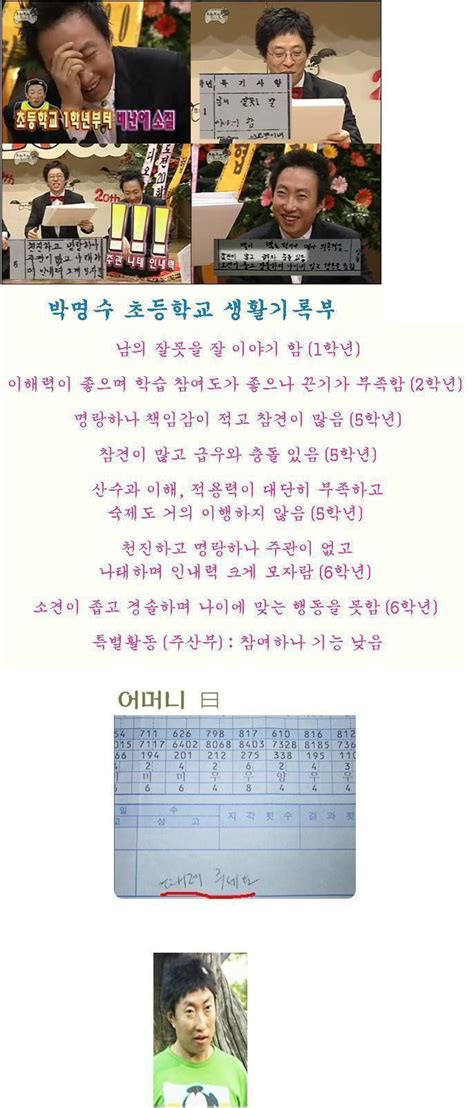 초등학교 1학년부터 비난에 소질
특기사항
20th
20th
천진하고 명랑하나
주관이 없고 나태하
며 인내력 크게 모자람
주관 나태 인내력
박명수 초등학교 생활기록부
남의 잘못을 잘 이야기 함 (1학년)
이해력이 좋으며 학습 참여도가 좋으나 끈기가 부족함 (2학년)
명랑하나 책임감이 적고 참견이 많음 (5학년)
참견이 많고 급우와 충돌 있음 (5학년)
산수과 이해, 적용력이 대단히 부족하고
숙제도 거의 이행하지 않음 (5학년)
천진하고 명랑하나 주관이 없고
나태하며 인내력 크게 모자람 (6학년)
소견이 좁고 경솔하며 나이에 맞는 행동을 못함 (6학년)
특별활동 (주산부) : 참여하나 기능 낮음
어머니 曰
54 711 626 798 817 610 816 812
015 7117 6402 8068 8403 7328 8185 736
66 194 201 212 275 338 195 110
2 4 2 2 6 2 4 3
미 미 우 우 양 우 우
6 6 4 8 4 4 4
일 수
고 상 고
지 각 횟 수
결 과 횟
때려 주세요